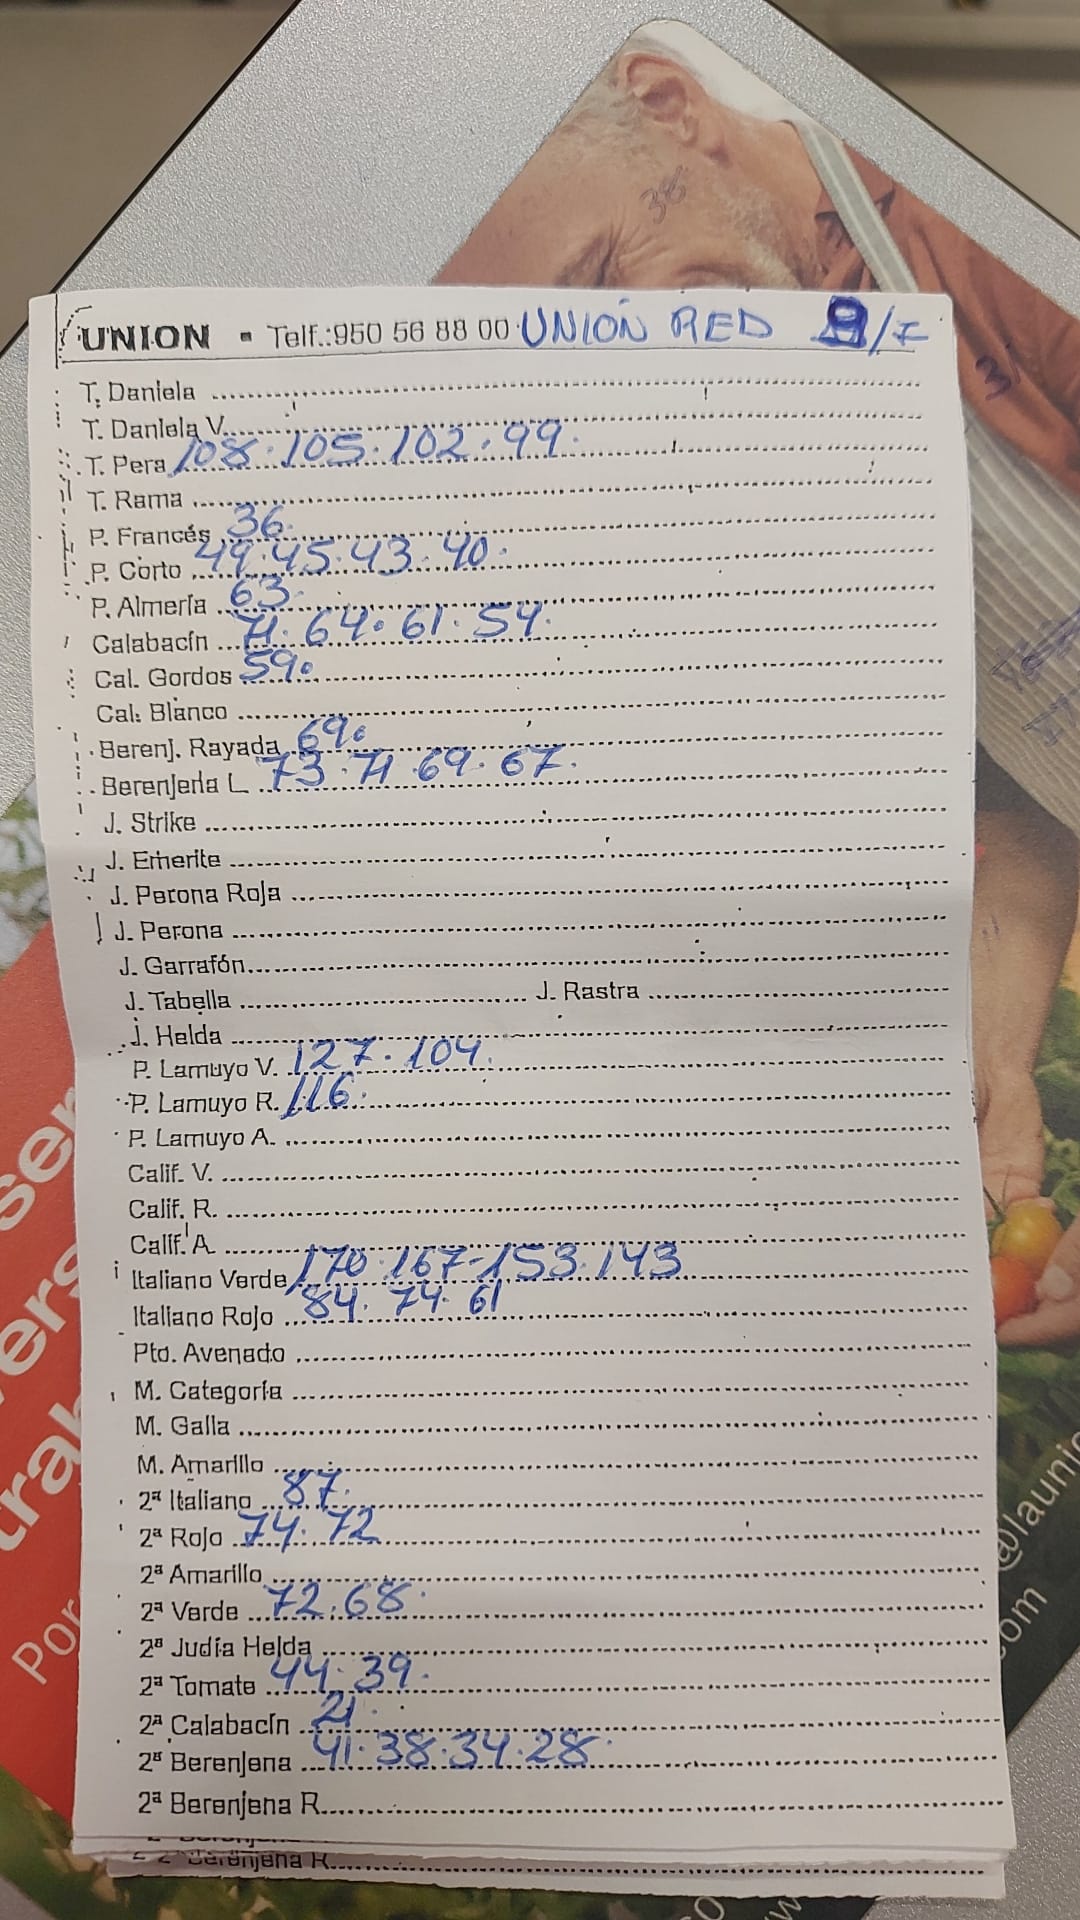 38
UNION - Telf.:950 56 88 00 UNIÓN RED
T. Daniela
T. Daniela V.
T. Pera 108.105.102.99.
T. Rama
P. Francés 36.
P. Corto 49.45.43.40.
P. Almería 63.
Calabacín 71.64.61.54.
Cal. Gordos 59.
Cal. Blanco
Berenj. Rayada 69.
Berenjena L 73.71.69.67.
J. Strike
J. Emerite
J. Perona Roja
J. Perona
J. Garrafón
J. Tabella J. Rastra
J. Helda
P. Lamuyo V. 127.104.
P. Lamuyo R. 116.
P. Lamuyo A.
Calif. V.
Calif. R.
Calif. A
Italiano Verde 170.167-153.143
Italiano Rojo 84.74.61
Pto. Avenado
M. Categoría
M. Galla
M. Amarillo
2ª Italiano 87.
2ª Rojo 74.72
2ª Amarillo
2ª Verde 72.68.
2ª Judía Helda
2ª Tomate 44.39.
2ª Calabacín 21.
2ª Berenjena 41.38.34.28.
2ª Berenjena R.
2ª Berenjena R.
Por
@launio
om